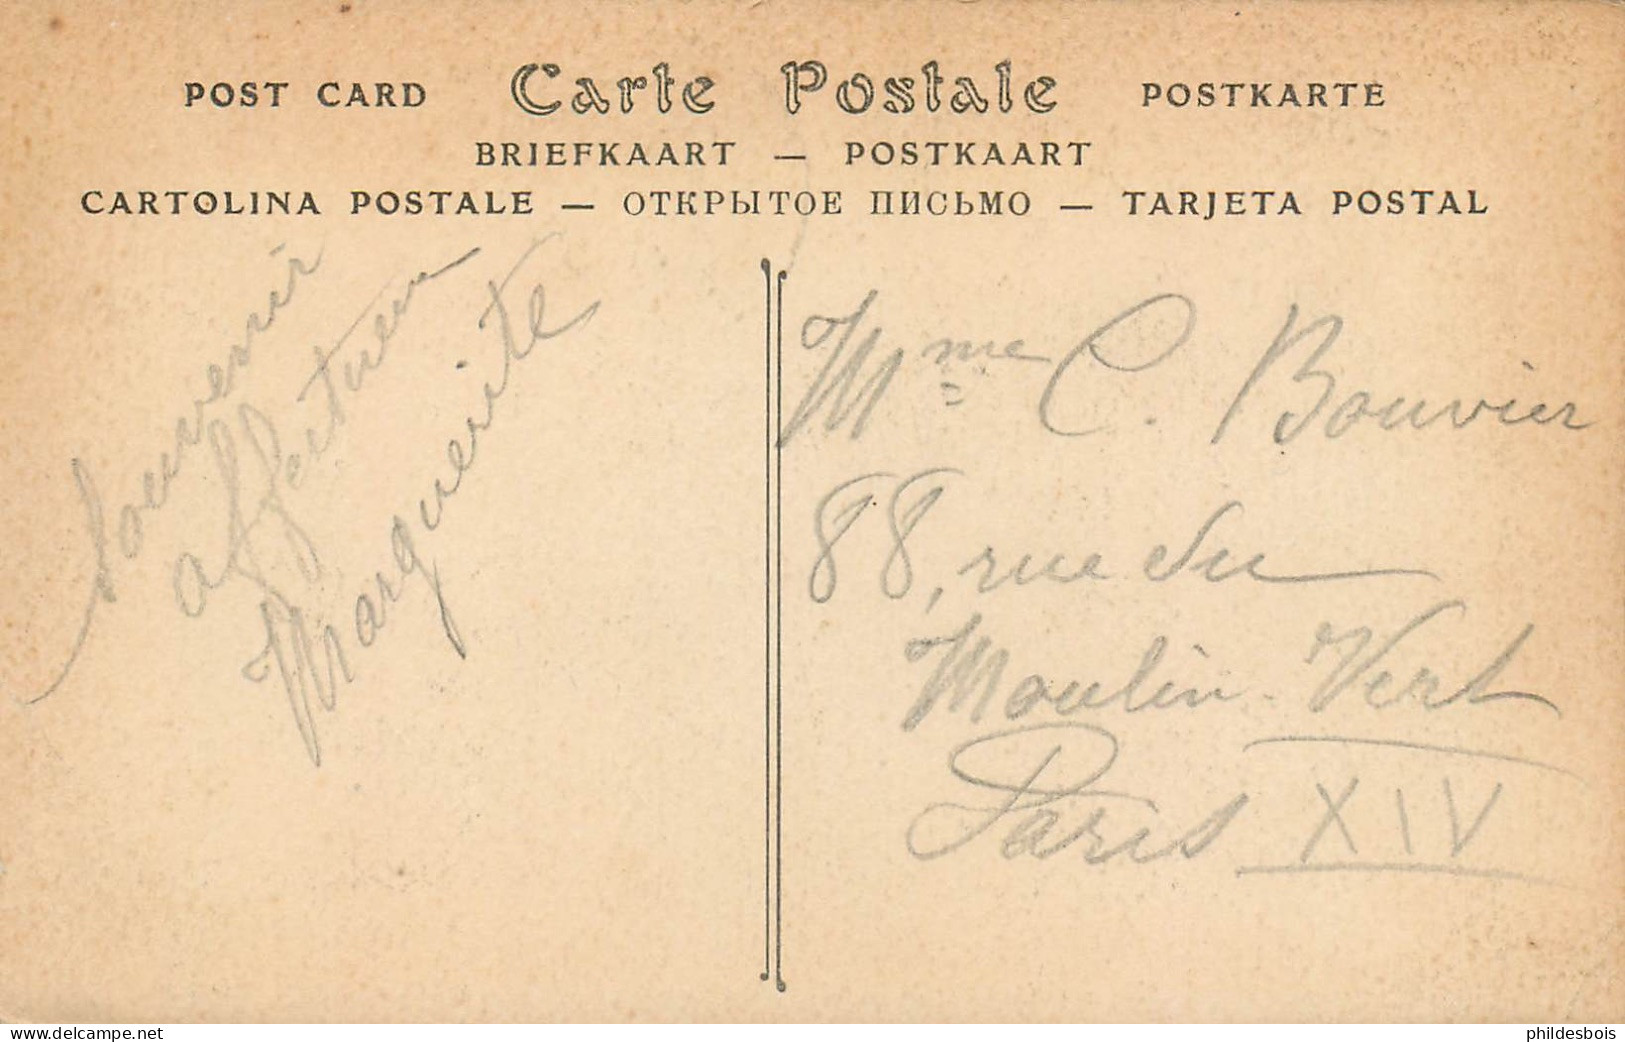 POST CARD Carte Postale POSTKARTE
BRIEFKAART — POSTKAART
CARTOLINA POSTALE — ОТКРЫТОЕ ПИСЬМО — TARJETA POSTAL
Souvenir
affectueux
Marguerite
Mme C. Bouvier
88, rue du
Moulin-Vert
Paris XIV
www.delcampe.net
phildesbois